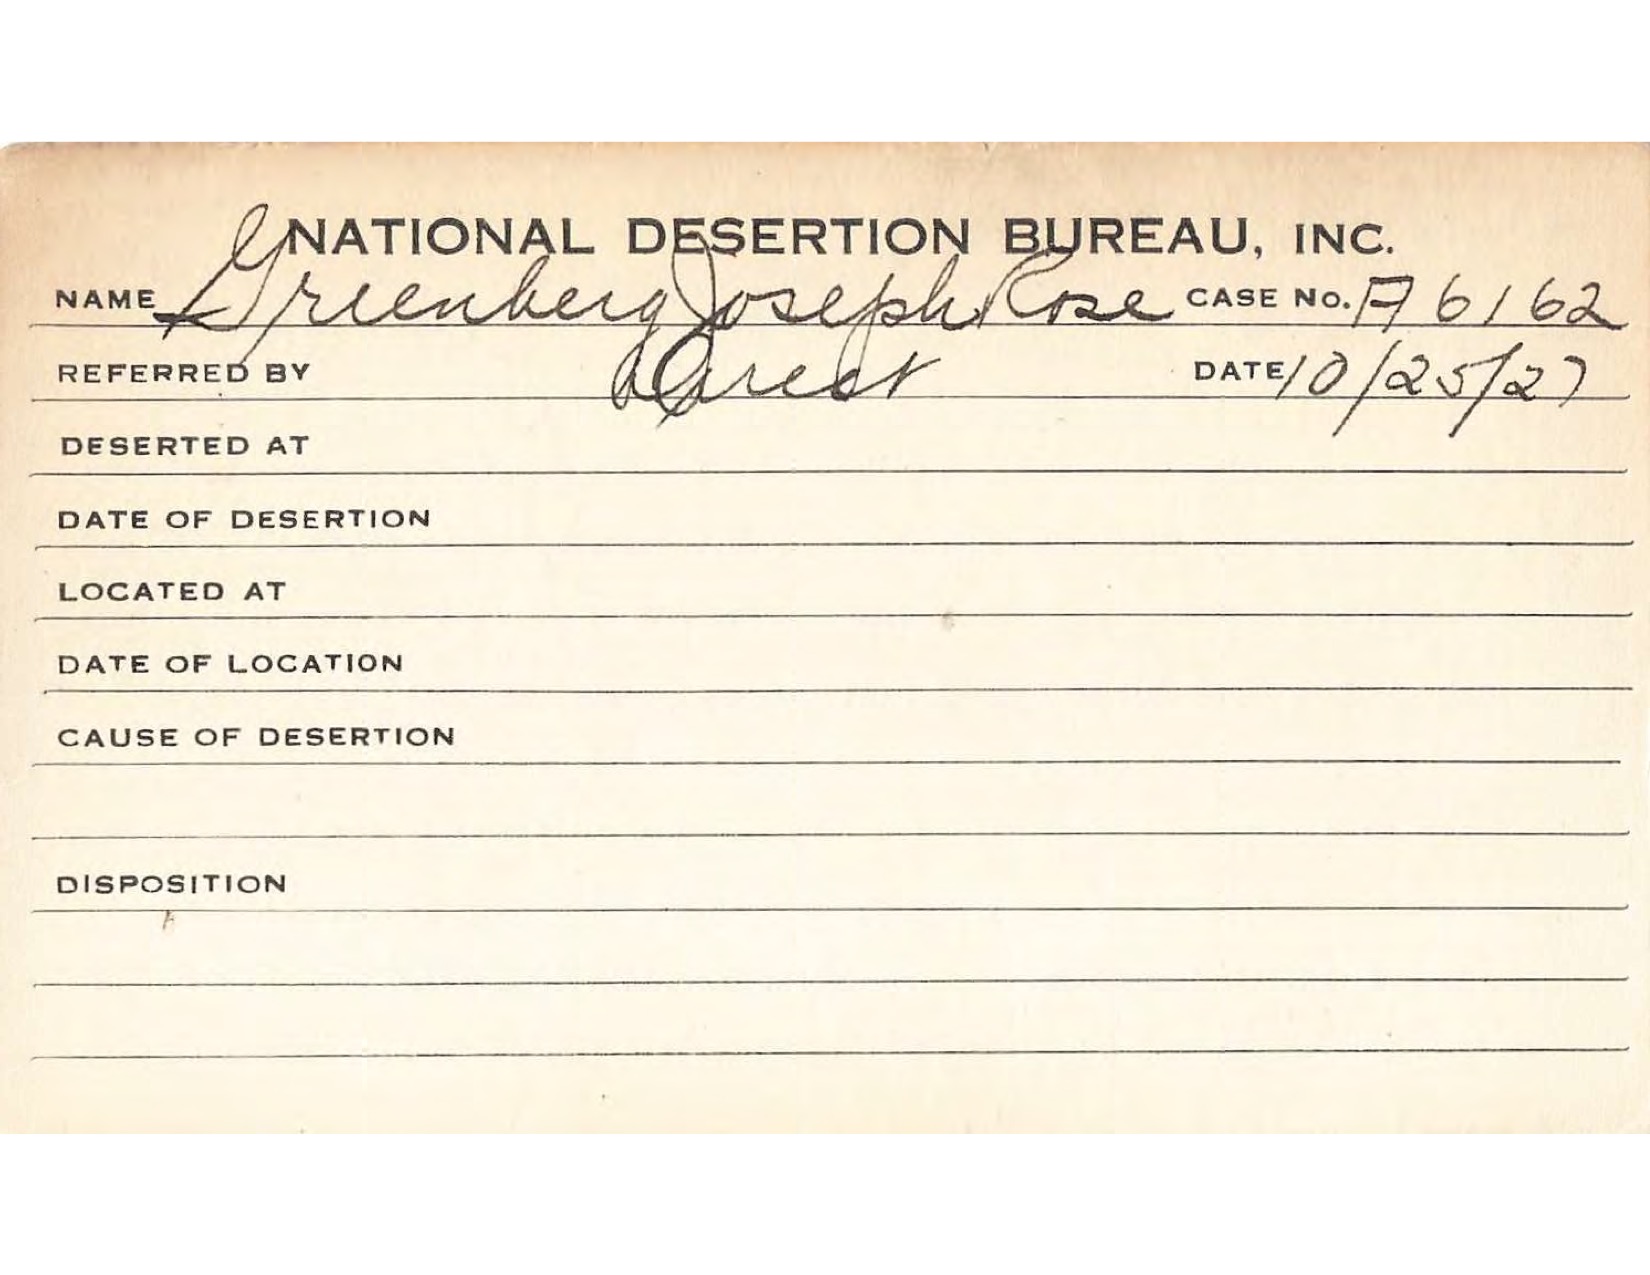 NATIONAL DESERTION BUREAU, INC.
NAME Greenberg Joseph Rose CASE No. A6162
REFERRED BY Direct DATE 10/25/27
DESERTED AT
DATE OF DESERTION
LOCATED AT
DATE OF LOCATION
CAUSE OF DESERTION
DISPOSITION